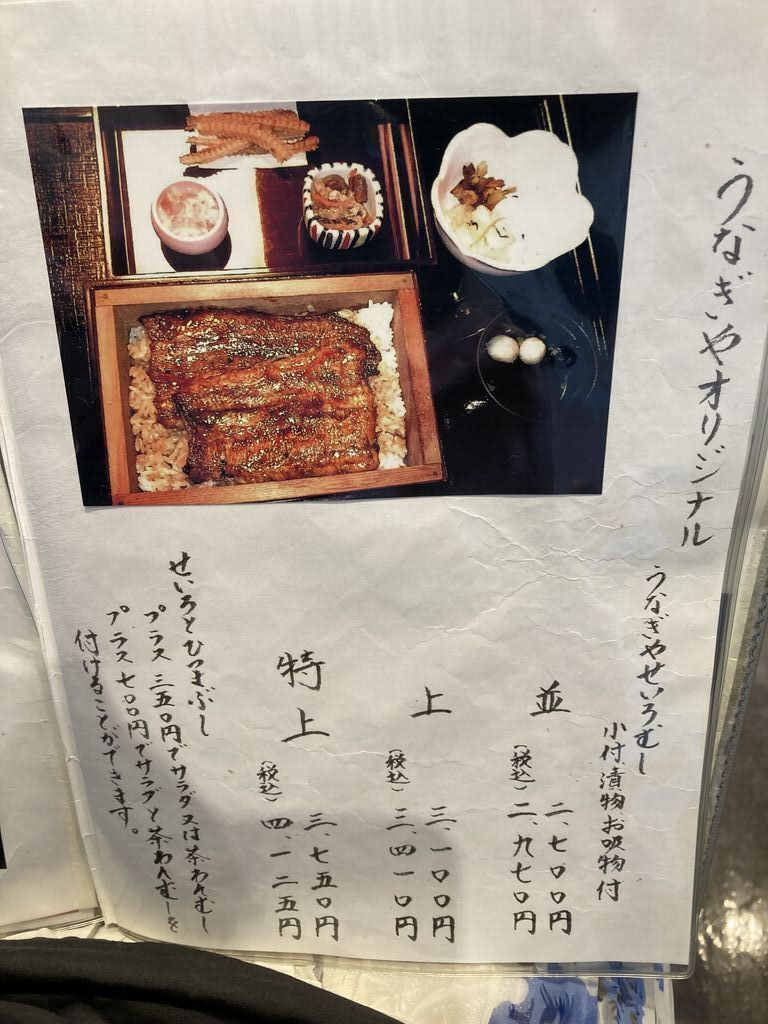 うなぎやオリジナル
うなぎやせいろむし
小付漬物お吸物付
並 二、七〇〇円
(税込) 二、九七〇円
上 三、一〇〇円
(税込) 三、四一〇円
特上 三、七五〇円
(税込) 四、一二五円
せいろとひつまぶし
プラス三五〇円でサラダ又は茶わんむし
プラス七〇〇円でサラダと茶わんむしを
付けることができます。